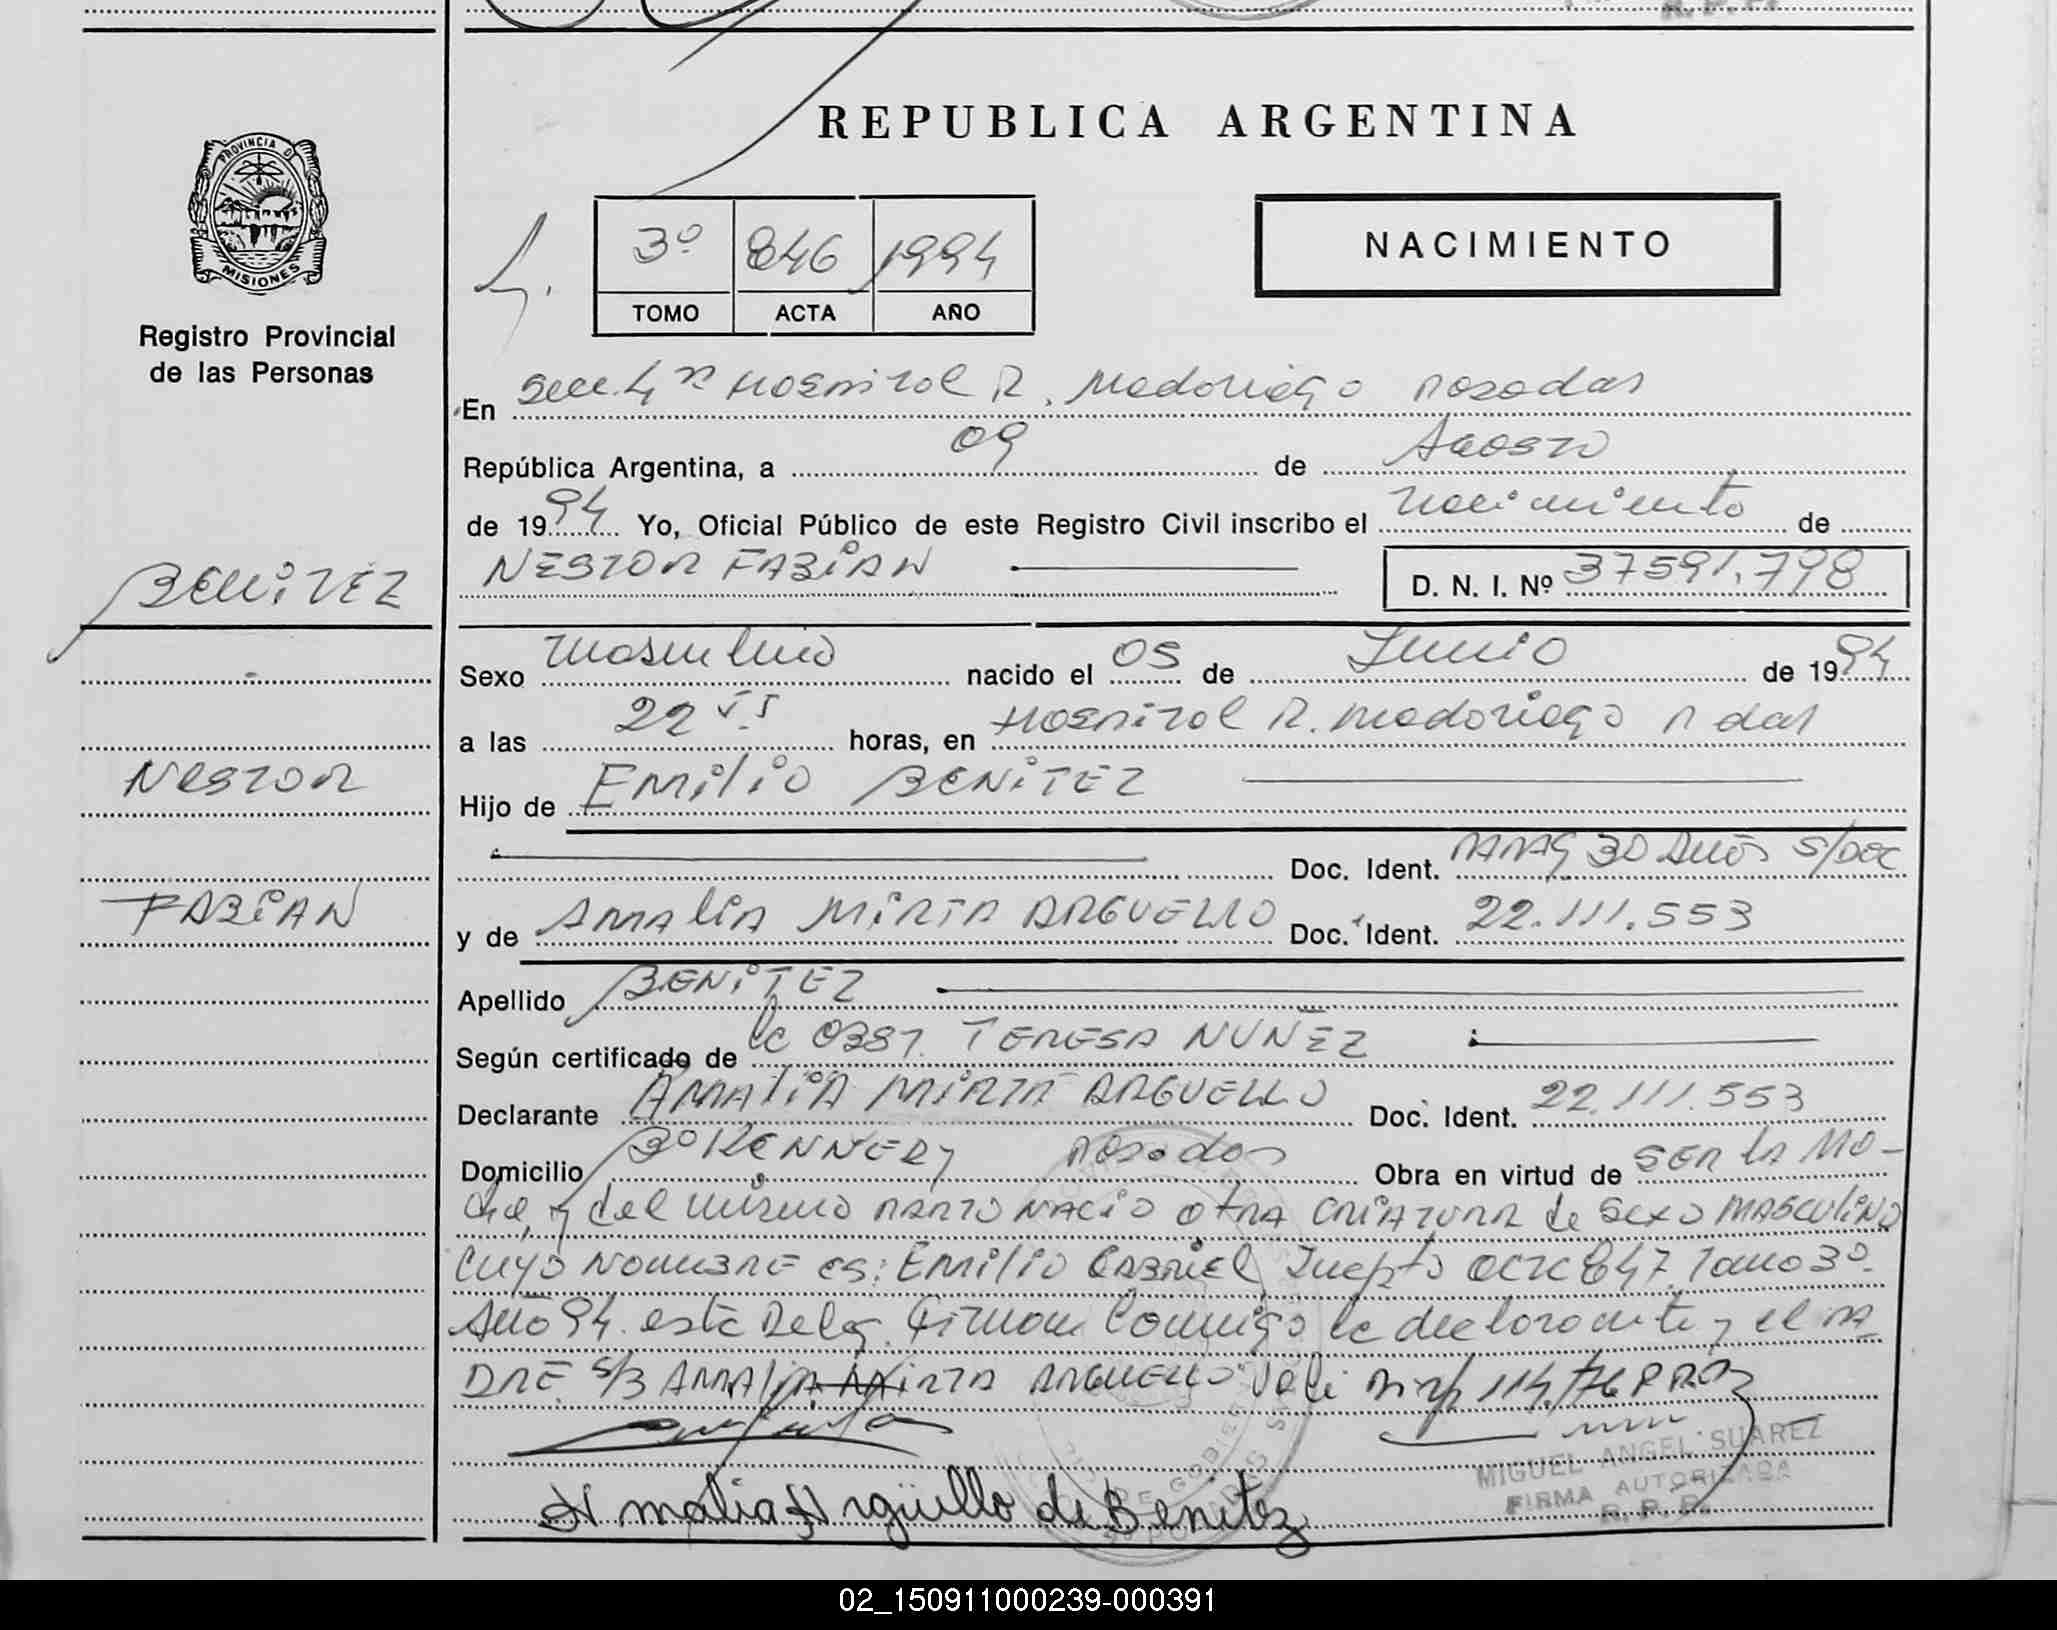 R. P. P.
REPUBLICA ARGENTINA
PROVINCIA D
MISIONES
Registro Provincial
de las Personas
3º 846 1994
TOMO ACTA AÑO
NACIMIENTO
En Secc. 4ª Hospital R. Madariaga Posadas
República Argentina, a 09 de Agosto
de 1994 Yo, Oficial Público de este Registro Civil inscribo el Nacimiento de
NESTOR FABIAN D. N. I. Nº 37591.798
BENITEZ
Sexo Masculino nacido el 05 de Junio de 1994
a las 22 horas, en Hospital R. Madariaga Pdas
NESTOR
Hijo de EMILIO BENITEZ
Doc. Ident. PARAG 30 Años S/DOC
FABIAN
y de AMALIA MIRTA ARGUELLO Doc. Ident. 22.111.553
Apellido BENITEZ
Según certificado de la OBST. TERESA NUÑEZ
Declarante AMALIA MIRTA ARGUELLO Doc. Ident. 22.111.553
Domicilio Bº KENNEDY Posadas Obra en virtud de SER LA MA-
dre, y del mismo PARTO NACIO OTRA CRIATURA de SEXO MASCULINO
CUYO NOMBRE es: EMILIO GABRIEL Incpto acta 847 Tomo 3º
Año 94. esta Deleg. Firman Conmigo la declarante y el PA-
DRE S/B AMALIA MIRTA ARGUELLO Vale 114/76
Amalia Argüello de Benitez
MIGUEL ANGEL SUAREZ
FIRMA AUTORIZADA
R. P. P.
02_150911000239-000391